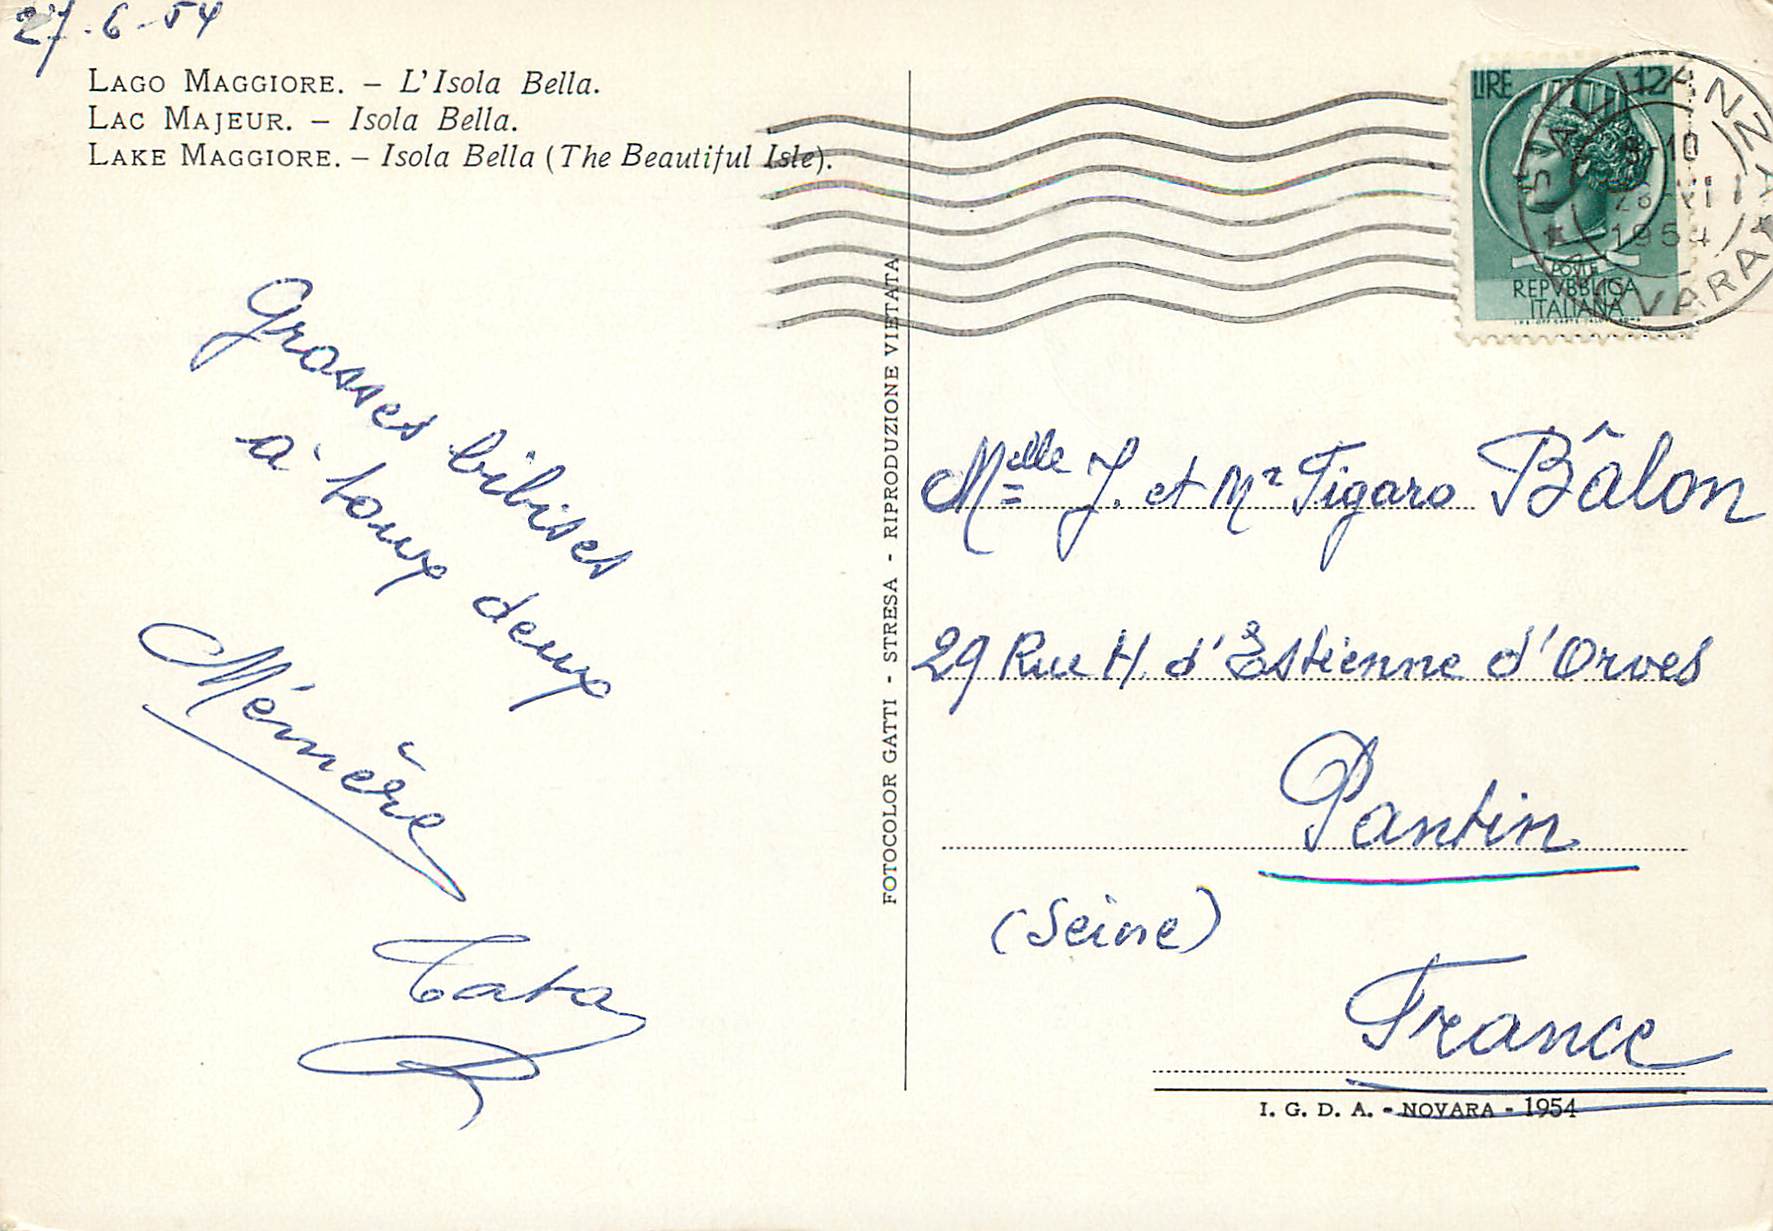 27-6-54
LAGO MAGGIORE. – L'Isola Bella.
LAC MAJEUR. – Isola Bella.
LAKE MAGGIORE. – Isola Bella (The Beautiful Isle).
Grosses bibises
à tous deux
Mémère
Tata
FOTOCOLOR GATTI - STRESA - RIPRODUZIONE VIETATA
LIRE 12
POSTE
REPVBBLICA
ITALIANA
1954
Melle J. et Mr Figaro Bâlon
29 Rue H. d'Estienne d'Orves
Pantin
(Seine)
France
I. G. D. A. - NOVARA - 1954